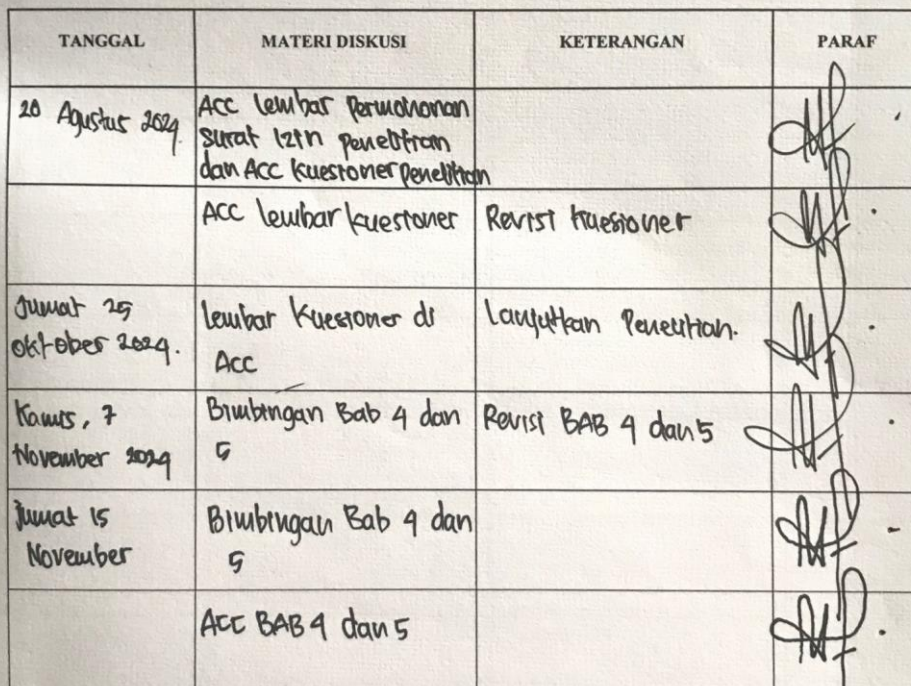 TANGGAL MATERI DISKUSI KETERANGAN PARAF
20 Agustus 2024
Acc lembar Permohonan
surat izin penelitian
dan Acc kuesioner penelitian
Acc lembar kuesioner
Revisi kuesioner
Jumat 25
Oktober 2024.
lembar kuesioner di
Acc
Lanjutkan Penelitian.
Kamis, 7
November 2024
Bimbingan Bab 4 dan
5
Revisi BAB 4 dan 5
Jumat 15
November
Bimbingan Bab 4 dan
5
Acc BAB 4 dan 5